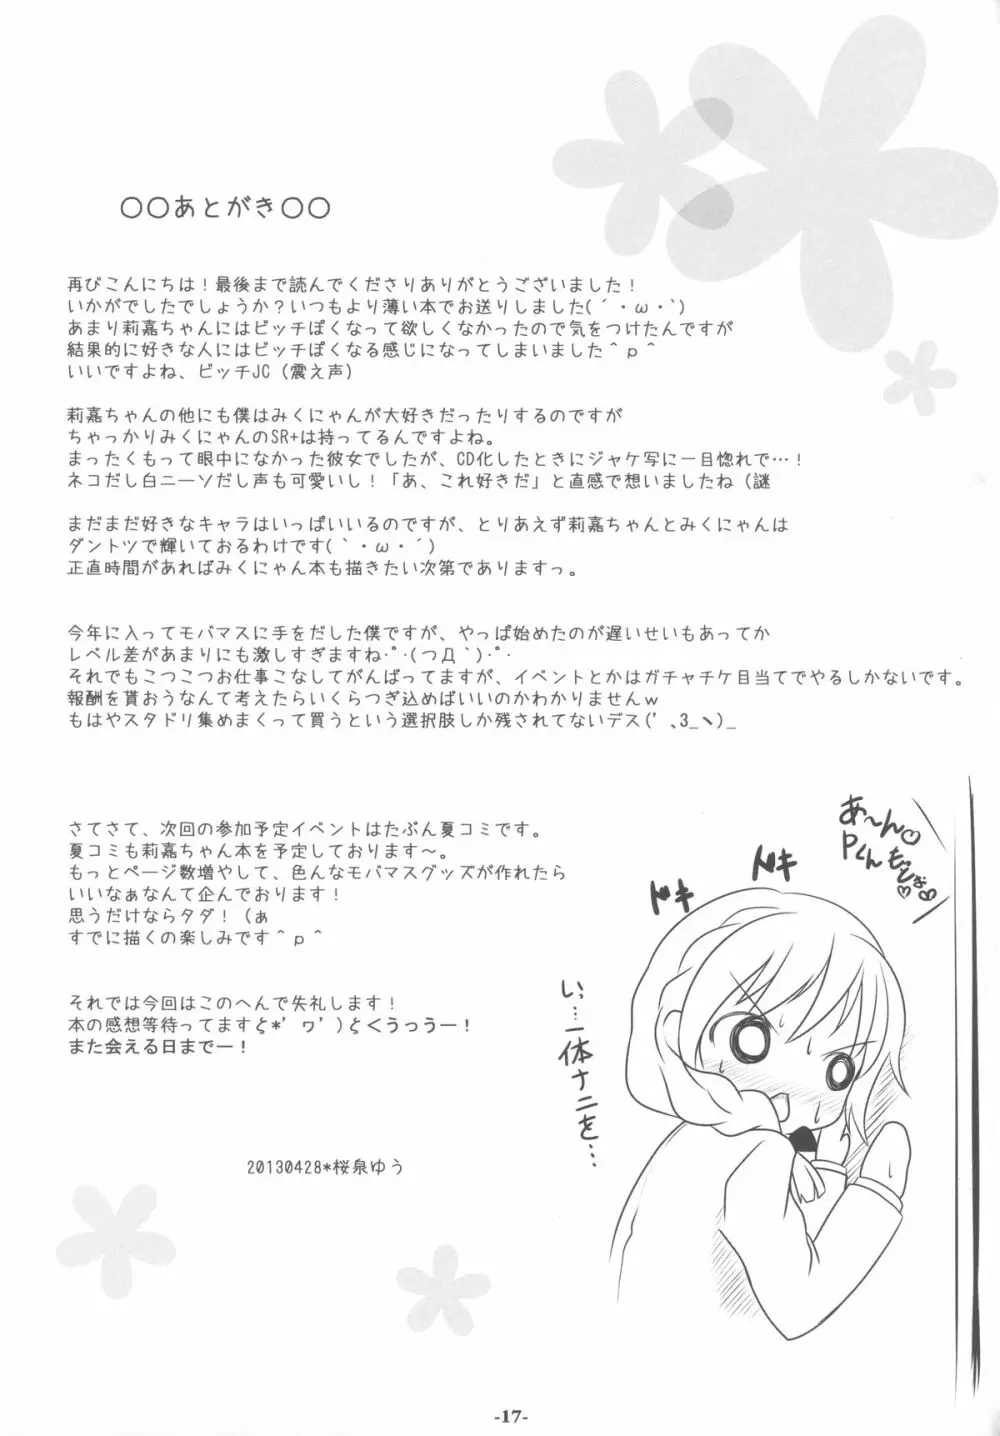 〇〇あとがき〇〇
再びこんにちは！最後まで読んでくださりありがとうございました！
いかがでしたでしょうか？いつもより薄い本でお送りしました(´・ω・`)
あまり莉嘉ちゃんにはビッチぽくなって欲しくなかったので気をつけたんですが
結果的に好きな人にはビッチぽくなる感じになってしまいました＾ｐ＾
いいですよね、ビッチJC（震え声）
莉嘉ちゃんの他にも僕はみくにゃんが大好きだったりするのですが
ちゃっかりみくにゃんのSR+は持ってるんですよね。
まったくもって眼中になかった彼女でしたが、CD化したときにジャケ写に一目惚れで…！
ネコだし白ニーソだし声も可愛いし！「あ、これ好きだ」と直感で想いましたね（謎
まだまだ好きなキャラはいっぱいいるのですが、とりあえず莉嘉ちゃんとみくにゃんは
ダントツで輝いておるわけです(｀・ω・´)
正直時間があればみくにゃん本も描きたい次第でありますっ。
今年に入ってモバマスに手をだした僕ですが、やっぱ始めたのが遅いせいもあってか
レベル差があまりにも激しすぎますね･ﾟ･(つД｀)･ﾟ･
それでもこつこつお仕事こなしてがんばってますが、イベントとかはガチャチケ目当てでやるしかないです。
報酬を貰おうなんて考えたらいくらつぎ込めばいいのかわかりませんｗ
もはやスタドリ集めまくって買うという選択肢しか残されてないデス(’､3_ヽ)_
さてさて、次回の参加予定イベントはたぶん夏コミです。
夏コミも莉嘉ちゃん本を予定しております～。
もっとページ数増やして、色んなモバマスグッズが作れたら
いいなぁなんて企んでおります！
思うだけならタダ！（ぁ
すでに描くの楽しみです＾ｐ＾
それでは今回はこのへんで失礼します！
本の感想等待ってますζ*’ヮ’)ζ＜うっうー！
また会える日までー！
20130428*桜泉ゆう
あ～ん♡
Pくん
ドキ
ドキ
い…
一体ナニを…
-17-